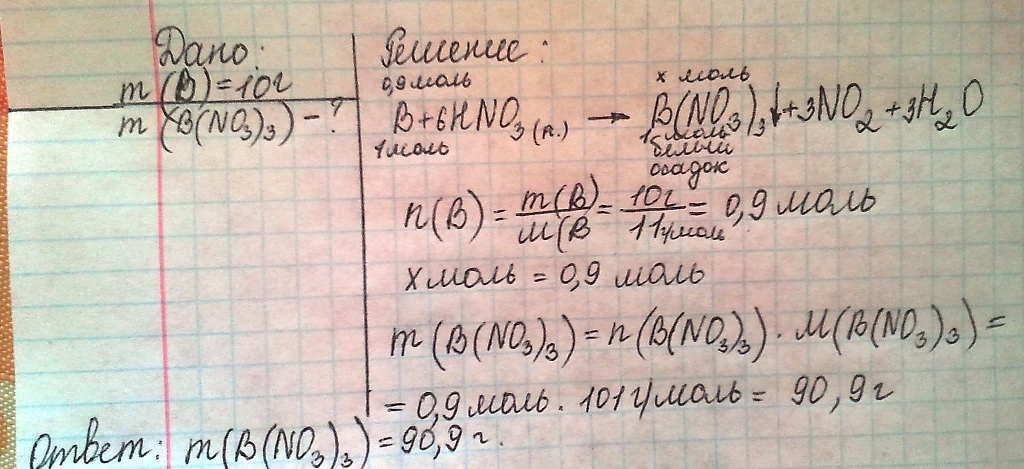 Дано:
m(B)=10г
m(B(NO₃)₃) - ?
Решение:
0,9 моль х моль
B+6HNO₃(к.) → B(NO₃)₃↓+3NO₂+3H₂O
1 моль 1 моль
белый
осадок
n(B) = m(B)/M(B = 10г/11г/моль = 0,9 моль
х моль = 0,9 моль
m(B(NO₃)₃)=n(B(NO₃)₃)·M(B(NO₃)₃)=
= 0,9 моль · 101г/моль = 90,9г
Ответ: m(B(NO₃)₃)=90,9г.